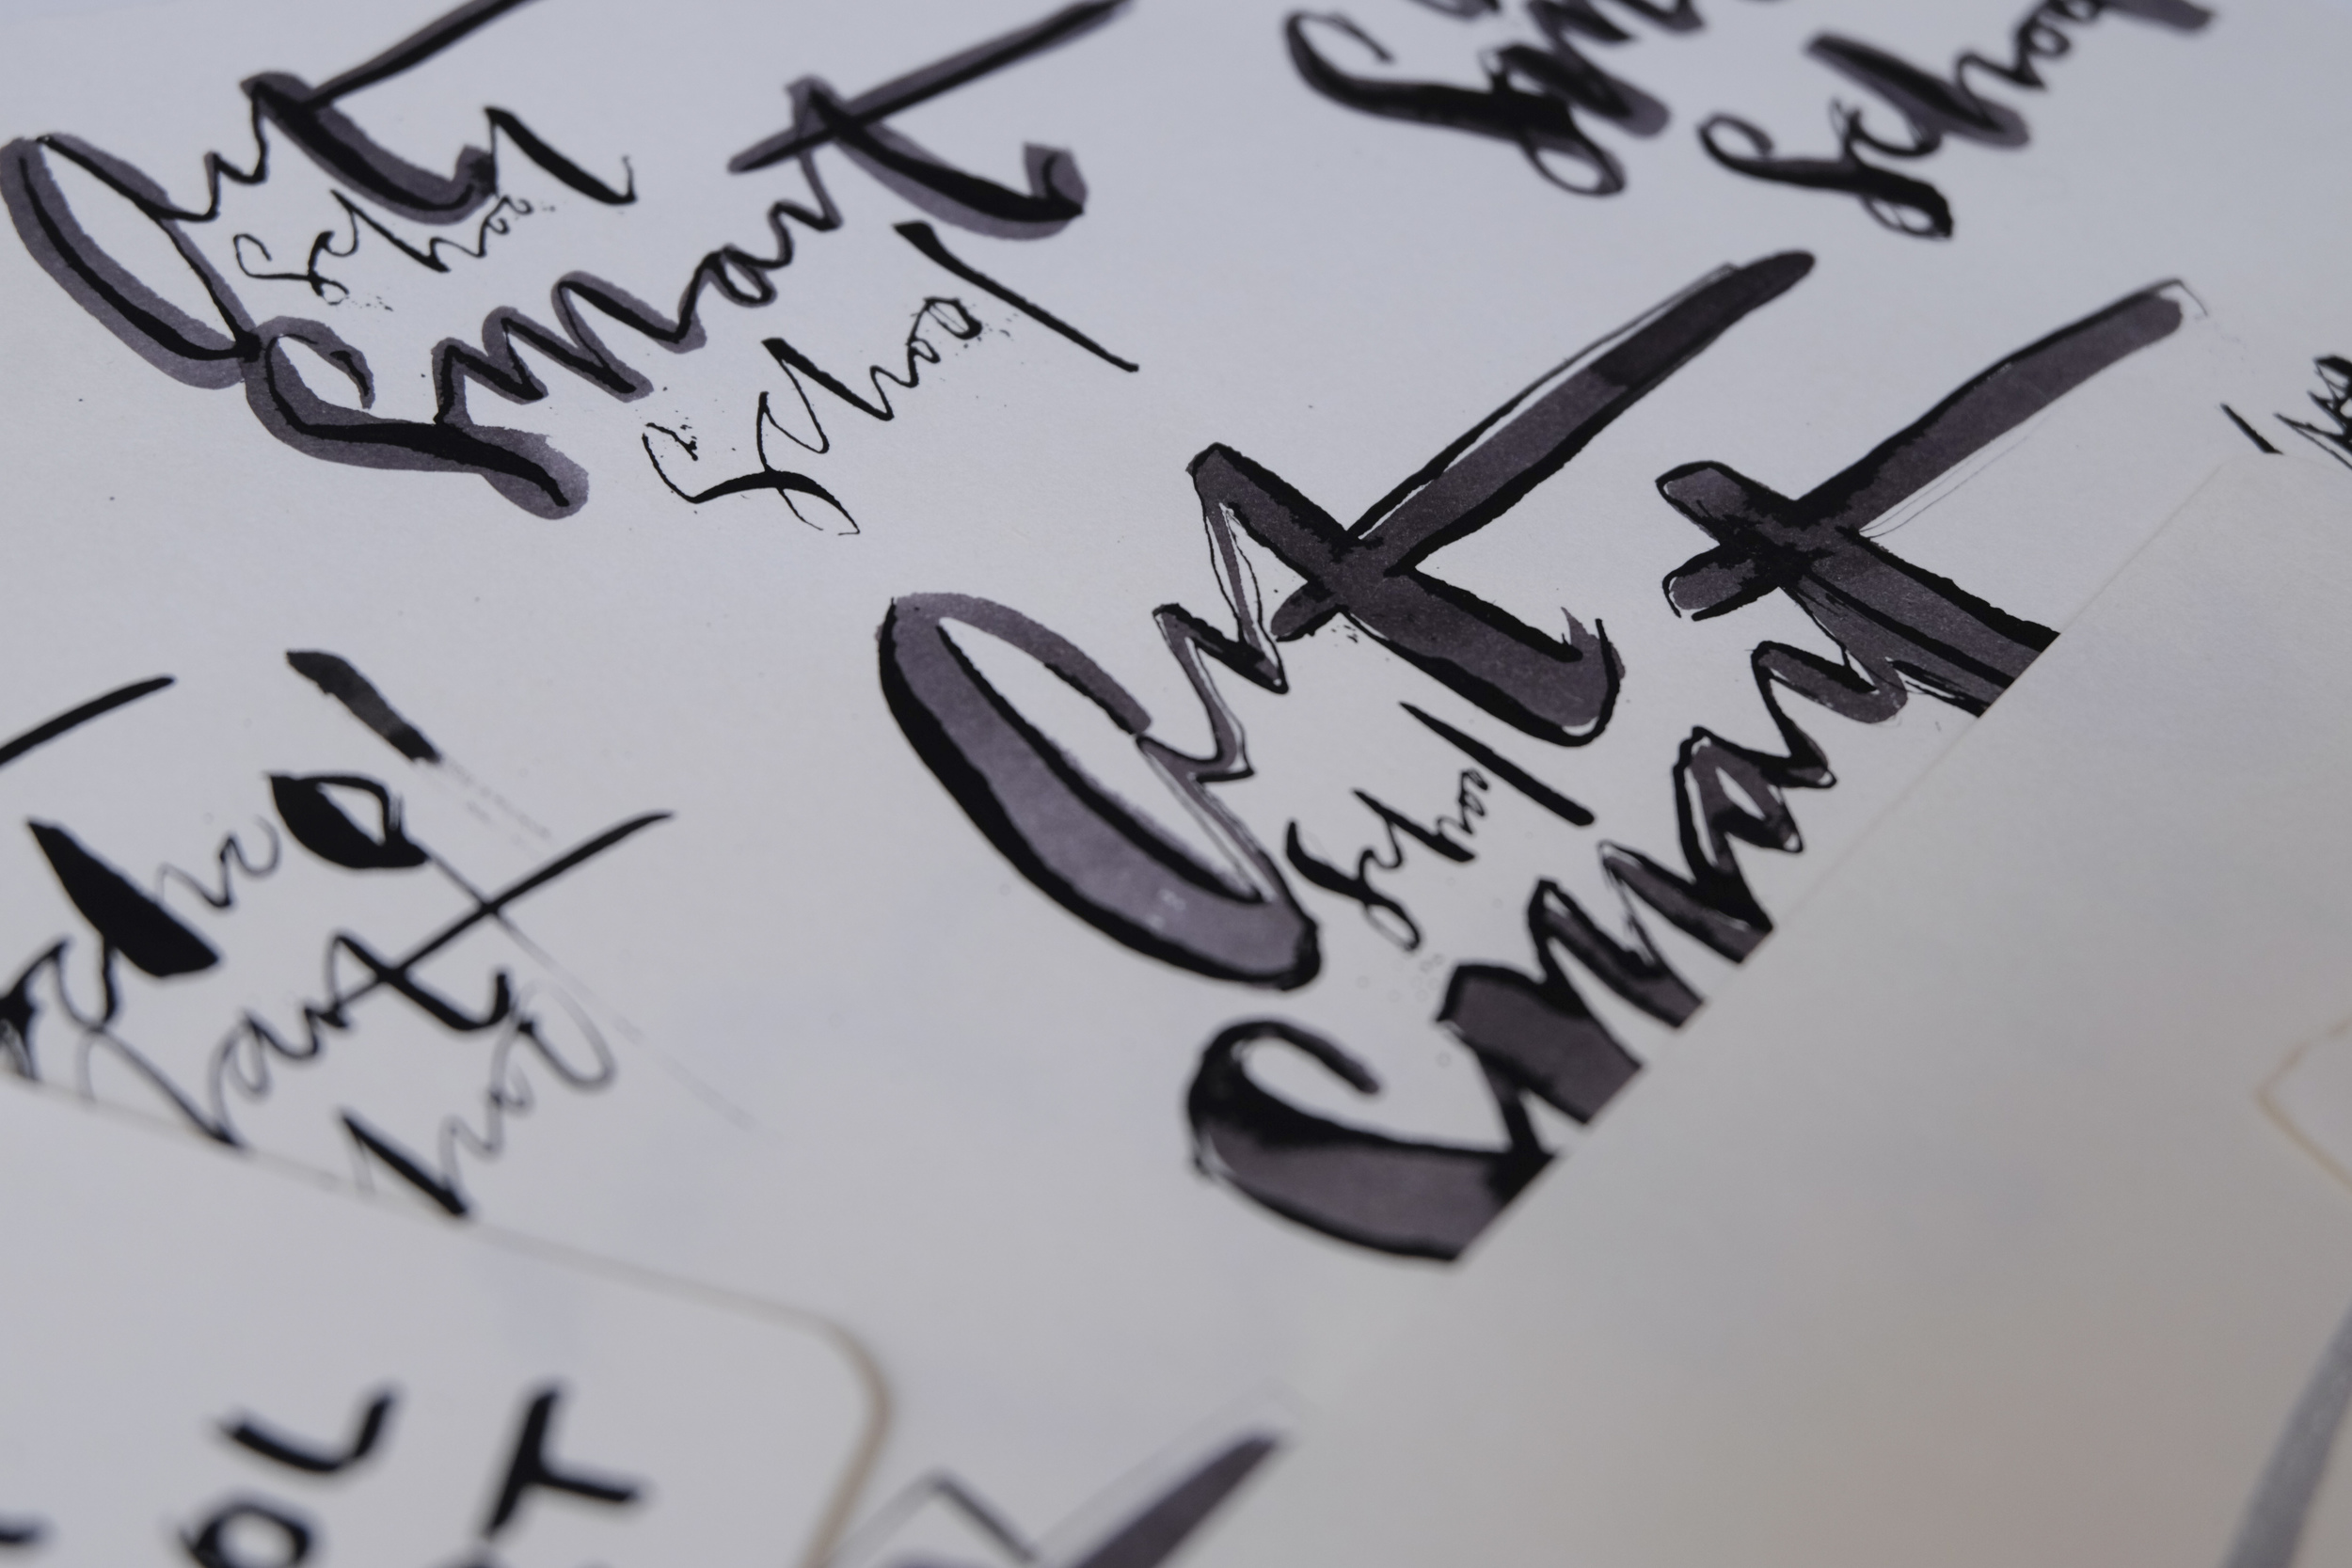 Art
School
Smart
School
Sm
School
Art
School
Smart
School
art
OL
T